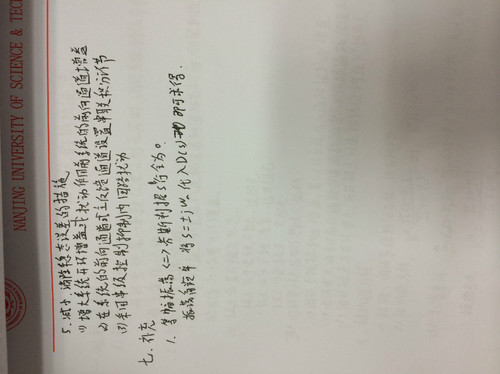 NANJING UNIVERSITY OF SCIENCE & TEC
5. 减小、消除稳态误差的措施
(1) 增大系统开环增益或扰动作用前系统的前向通道增益
(2) 在系统的前向通道或主反馈通道设置串联积分环节
(3) 采用串级控制抑制内回路扰动
七. 补充
1. 等幅振荡 <=> 劳斯判据s¹行全为0。
振荡角频率 将s=±jωn代入D(s)即可求得.